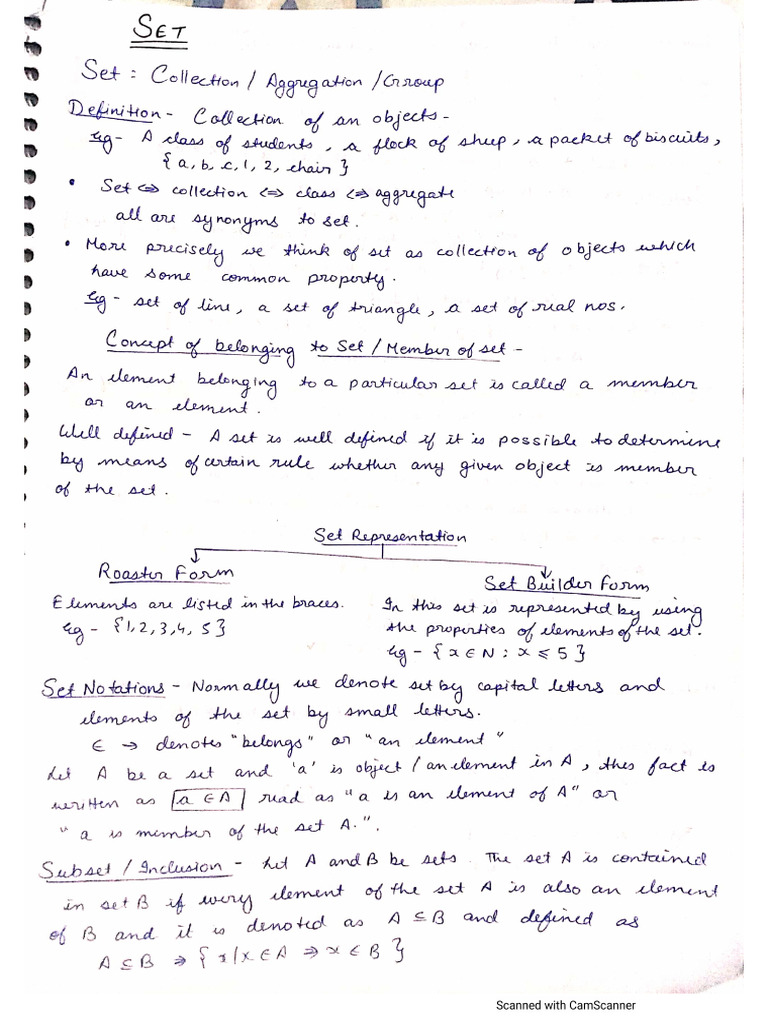 SET
Set : Collection / Aggregation / Group
Definition - Collection of an objects -
Eg - A class of students, a flock of sheep, a packet of biscuits,
{ a, b, c, 1, 2, chair }
• Set ⇔ collection ⇔ class ⇔ aggregate
all are synonyms to set.
• More precisely we think of set as collection of objects which
have some common property.
Eg - set of line, a set of triangle, a set of real nos.
Concept of belonging to Set / Member of set -
An element belonging to a particular set is called a member
or an element.
Well defined - A set is well defined if it is possible to determine
by means of certain rule whether any given object is member
of the set.
Set Representation
Roaster Form
Elements are listed in the braces.
Eg - {1, 2, 3, 4, 5}
Set Builder Form
In this set is represented by using
the properties of elements of the set.
Eg - { x ∈ N : x ⩽ 5 }
Set Notations - Normally we denote set by capital letters and
elements of the set by small letters.
∈ → denotes "belongs" or "an element"
Let A be a set and 'a' is object / an element in A, this fact is
written as a ∈ A read as "a is an element of A" or
"a is member of the set A.".
Subset / Inclusion - Let A and B be sets. The set A is contained
in set B if every element of the set A is also an element
of B and it is denoted as A ⊆ B and defined as
A ⊆ B ⇒ { x / x ∈ A ⇒ x ∈ B }
Scanned with CamScanner